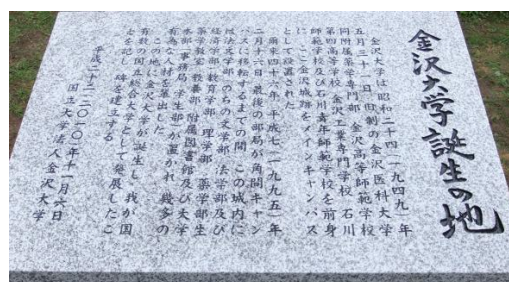 金沢大学誕生の地
金沢大学は昭和二十四(一九四九)年
五月三十一日 旧制の金沢医科大学
同附属薬学専門部 金沢高等師範学校
第四高等学校 金沢工業専門学校 石川
師範学校及び石川青年師範学校を前身
に ここ金沢城跡をメインキャンパス
として設置された
爾来四十六年 平成七(一九九五)年
二月十六日 最後の部局が角間キャン
パスに移転するまでの間 この城内に
は法文学部 のちの文学部 法学部及び
経済学部 教育学部 理学部 薬学部生
薬学教室 教養部 附属図書館及び大学
本部 事務局 学生部 が置かれ 幾多の
有為な人材を輩出した
この地に金沢大学が誕生し 我が国
有数の国立総合大学として発展したこ
とを記し 碑を建立する
平成二十二(二〇一〇)年十一月六日
国立大学法人金沢大学